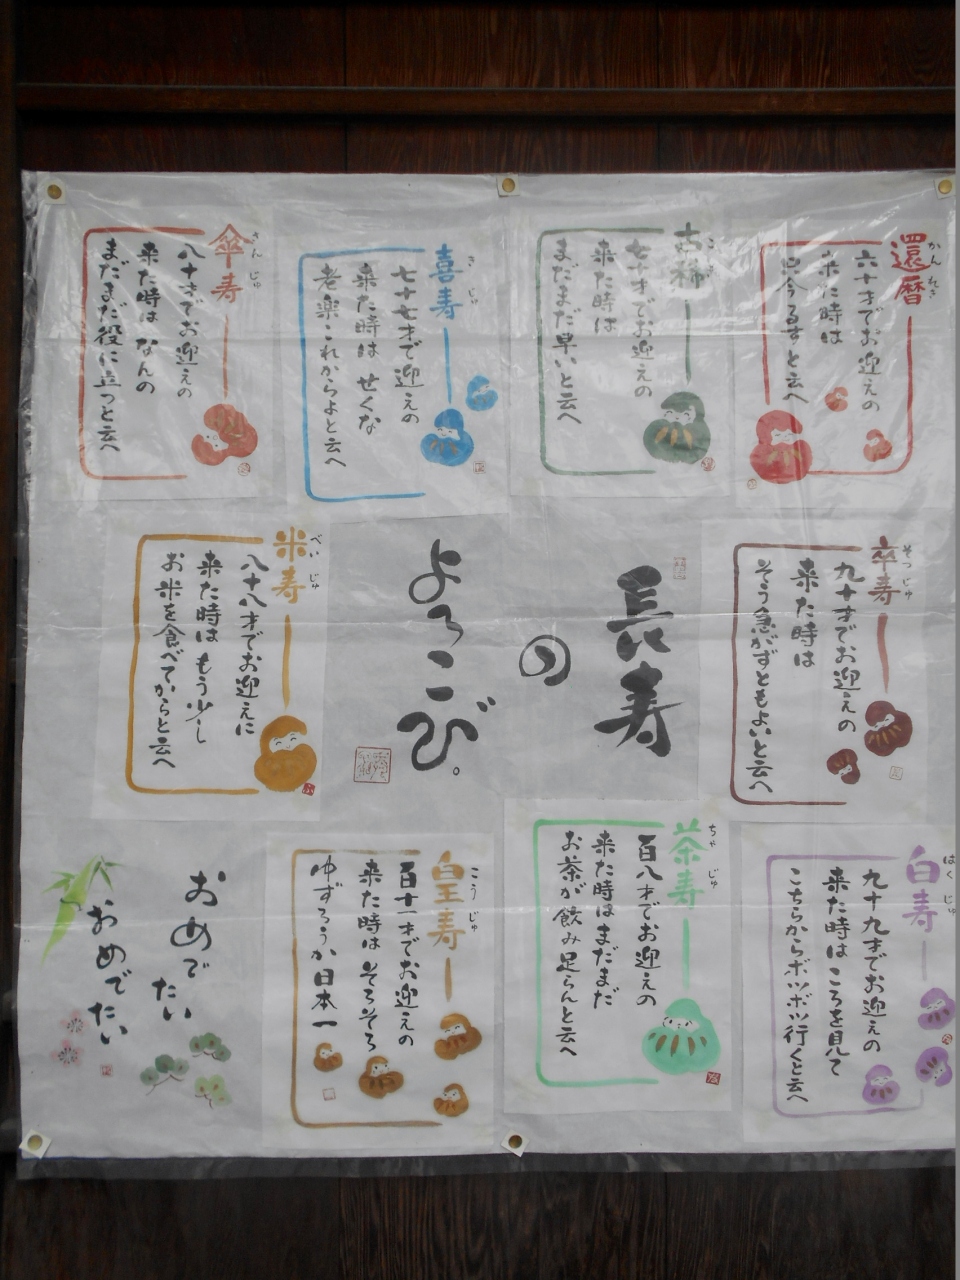 還暦
かんれき
六十才でお迎えの
来た時は
只今るすと云へ
古稀
こき
七十才でお迎えの
来た時は
まだまだ早いと云へ
喜寿
きじゅ
七十七才で迎えの
来た時は せくな
老楽これからよと云へ
傘寿
さんじゅ
八十才でお迎えの
来た時は なんの
まだまだ役に立つと云へ
卒寿
そつじゅ
九十才でお迎えの
来た時は
そう急がずともよいと云へ
長寿
の
よろこび。
米寿
べいじゅ
八十八才でお迎えに
来た時は もう少し
お米を食べてからと云へ
白寿
はくじゅ
九十九才でお迎えの
来た時は ころを見て
こちらからボツボツ行くと云へ
茶寿
ちゃじゅ
百八才でお迎えの
来た時はまだまだ
お茶が飲み足らんと云へ
皇寿
こうじゅ
百十一才でお迎えの
来た時は そろそろ
ゆずろうか日本一
おめで
たい
おめでたい